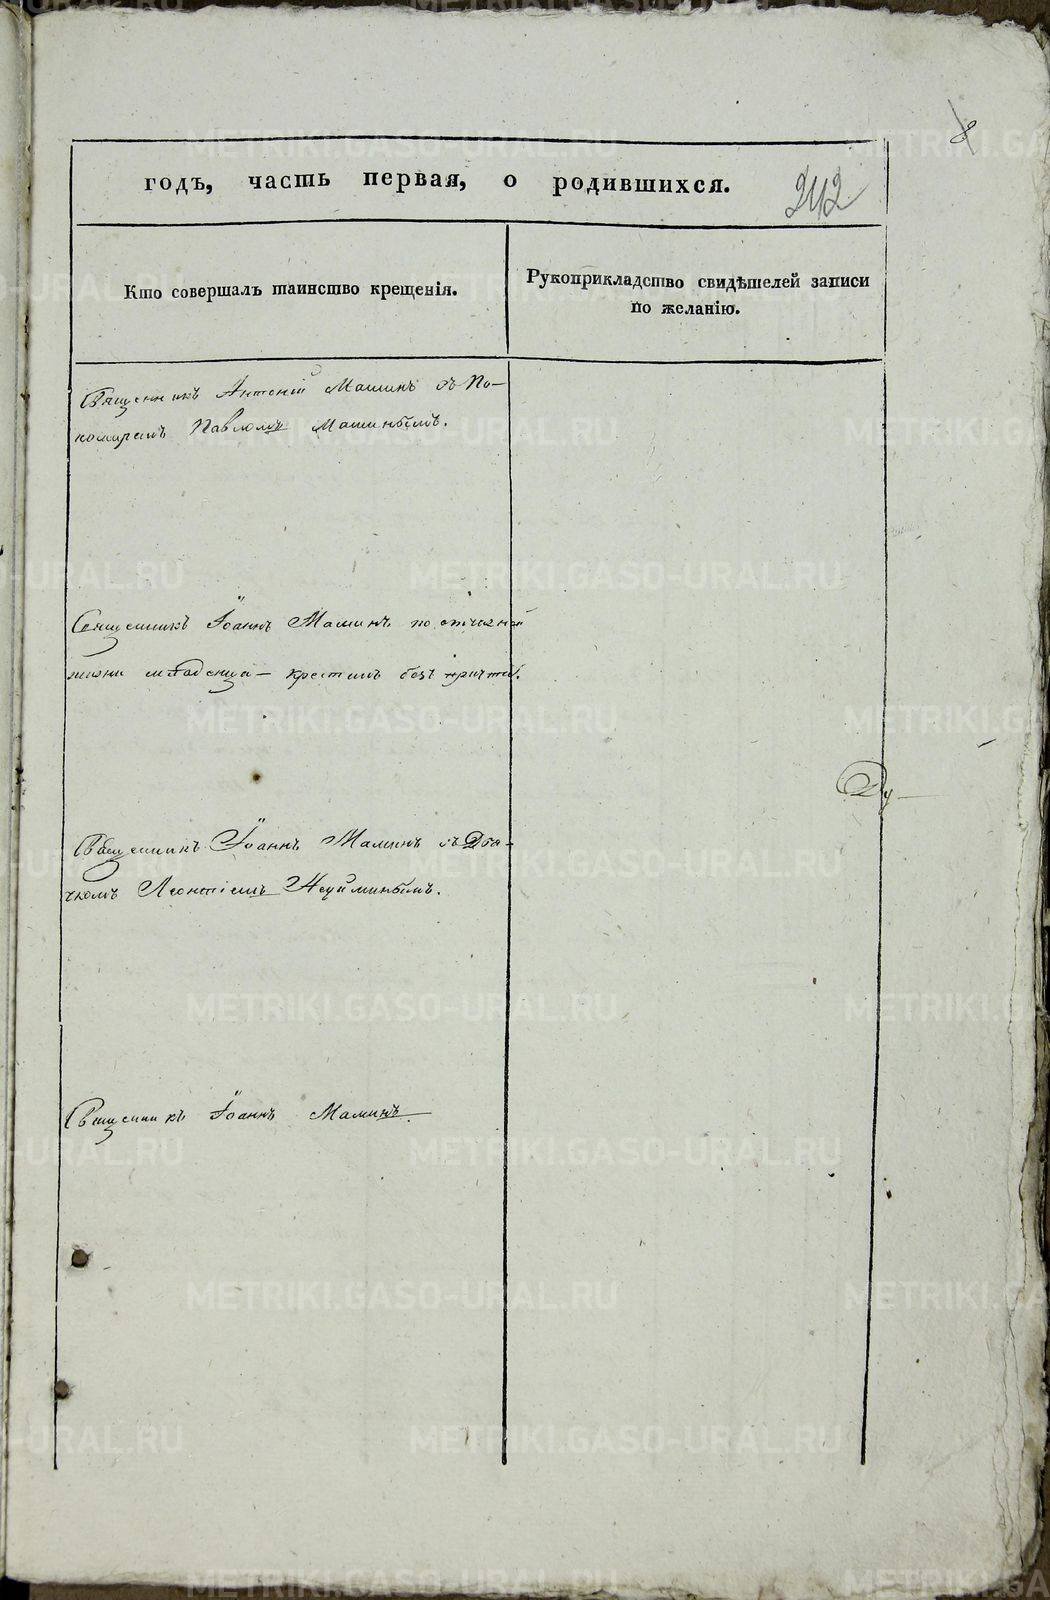 8
годъ, часть первая, о родившихся.
242
Кто совершалъ таинство крещенія.
Рукоприкладство свидѣтелей записи
по желанію.
Священникъ Антоній Машинъ съ По-
номаремъ Павломъ Машинымъ.
Священникъ Іоаннъ Маминъ по
жизни младенца — крестилъ безъ причта.
Священникъ Іоаннъ Маминъ съ Дья-
чкомъ Леонтіемъ
Священникъ Іоаннъ Маминъ.
METRIKI.GASO-URAL.RU